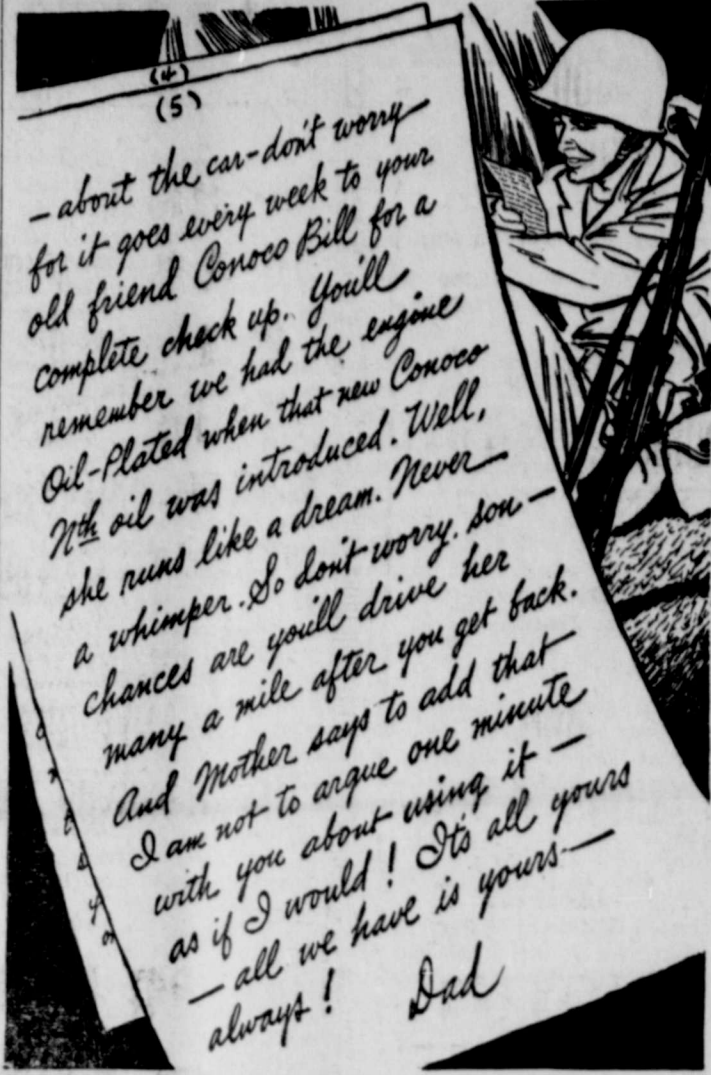 (4)
(5)
– about the car – don't worry
for it goes every week to your
old friend Conoco Bill for a
complete check up. You'll
remember we had the engine
Oil-Plated when that new Conoco
Nth oil was introduced. Well,
she runs like a dream. Never
a whimper. So don't worry. son –
chances are you'll drive her
many a mile after you get back.
And Mother says to add that
I am not to argue one minute
with you about using it –
as if I would! It's all yours
– all we have is yours –
always! Dad